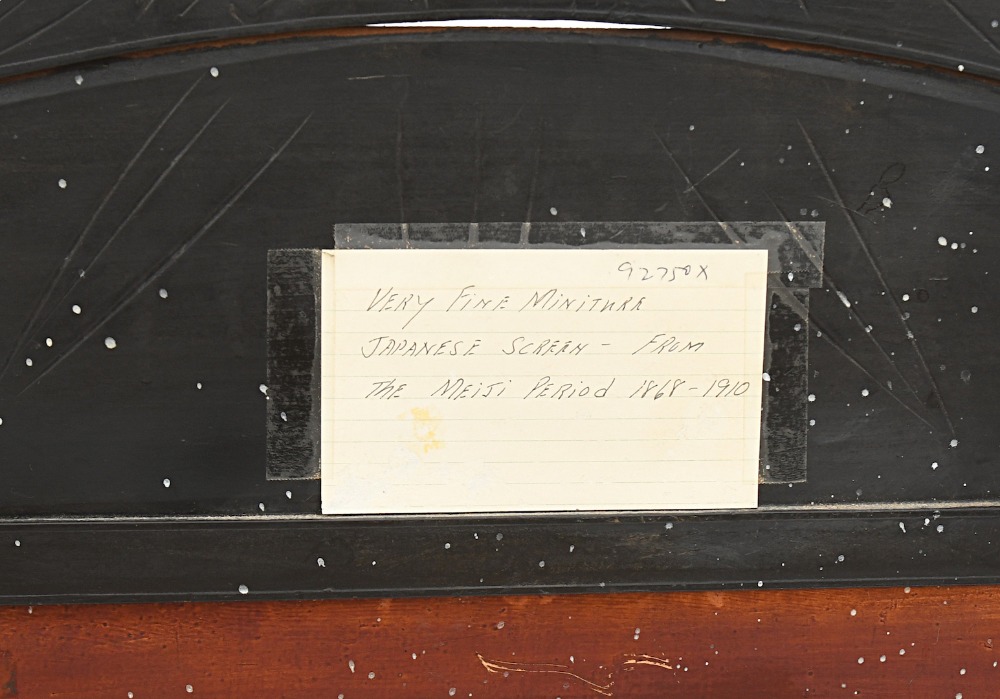 92750X
VERY FINE MINITURE
JAPANESE SCREEN - FROM
THE MEIJI PERIOD 1868-1910